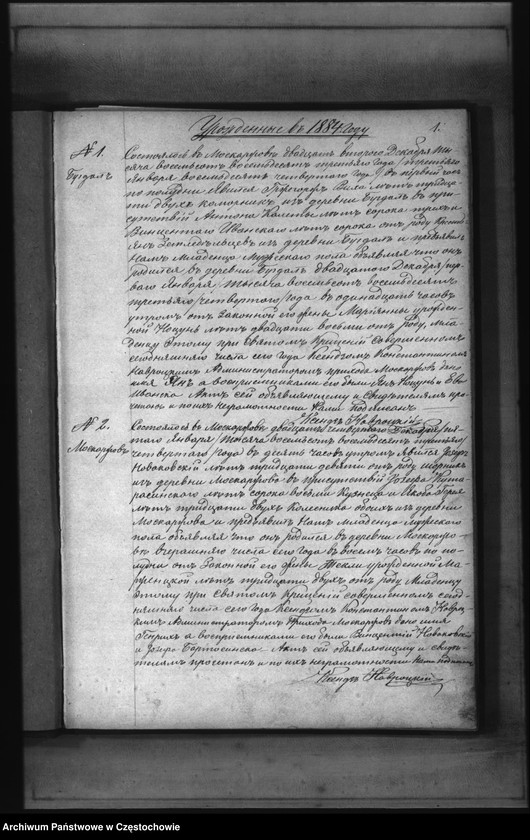 Урожденные въ 1884 году
1.
№ 1.
Бугдалъ
Состоялось въ Москоржовѣ двадцать втораго Декабря ты-
сяча восемьсотъ восемьдесятъ третьяго года / третьяго
Января восемьдесятъ четвертаго года / въ первый часъ
по полудни. Явился лѣтъ тридца-
ти двухъ коморникъ изъ деревни Бугдалъ въ при-
сутствіи Антона лѣтъ сорока трехъ и
Винцентаго лѣтъ сорока отъ роду Крестья
янъ Земледѣльцевъ изъ деревни Бугдалъ и предъявилъ
Намъ Младенца Мужескаго пола объявляя что онъ
родился въ деревнѣ Бугдалъ двадцатаго Декабря / пер-
ваго Января тысяча восемьсотъ восемьдесятъ
третьяго / четвертаго / года въ одинадцать часовъ
утромъ отъ Законной его жены Маріанны урожден-
ной лѣтъ двадцати восьми отъ роду, Мла-
денцу Этому при Святомъ Крещеніи Совершенномъ
сегодняшняго числа сего года Ксендзомъ Константиномъ
Навроцкимъ Администраторомъ прихода Москоржовъ дано
имя Янъ а воспріемниками его были Янъ и Ева
Актъ сей объявляющему и Свидѣтелямъ про-
читанъ и по ихъ неграмотности Нами Подписанъ
Ксендзъ Навроцкій
№ 2.
Москоржовъ
Состоялось въ Москоржовѣ двадцать четвертаго Декабря / пя-
таго Января / тысяча восемьсотъ восемьдесятъ третьяго /
четвертаго / года въ десять часовъ утромъ. Явился Іозефъ
Новаковскій лѣтъ тридцати девяти отъ роду
изъ деревни Москоржова въ присутствіи Іозефа
лѣтъ сорока восьми Кузнеца и Якова
лѣтъ тридцати двухъ обоихъ изъ деревни
Москоржова и предъявилъ Намъ Младенца Мужескаго
пола объявляя что онъ родился въ деревнѣ Москоржо-
въ вчерашняго числа сего года въ восемь часовъ по по-
лудни отъ Законной его жены Теклы урожденной
лѣтъ тридцати двухъ отъ роду Младенцу
этому при Святомъ Крещеніи совершенномъ сегод-
няшняго числа сего года Ксендзомъ Константиномъ Навроц-
кимъ Администраторомъ Прихода Москоржовъ дано имя
а воспріемниками его были Винцентій Новаковскій
и Актъ сей объявляющему и свидѣ-
телямъ прочитанъ и по ихъ неграмотности Нами подписанъ
Ксендзъ Навроцкій
Archiwum Państwowe w Częstochowie